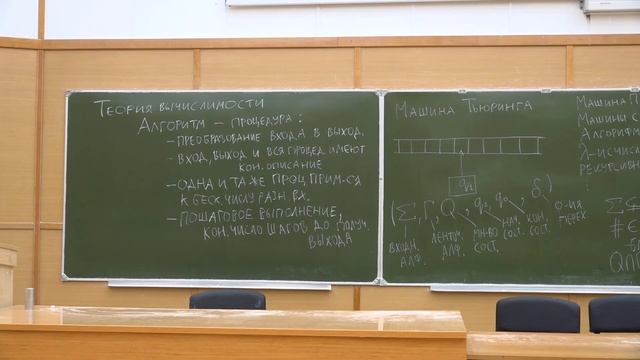 Теория вычислимости
Алгоритм – процедура:
– преобразование входа в выход,
– вход, выход и вся процед. имеют
кон. описание
– одна и та же проц. прим-ся
к беск. числу разн. вх.
– пошаговое выполнение,
кон. число шагов до получ.
выхода
Машина Тьюринга
(Σ, Γ, Q, q₁, q₀, δ)
входн. алф.
ленточ. алф.
мн-во сост.
нач. сост.
кон. сост.
ф-ия перех.
Машина П
Машины с
Алгорифм
λ-исчис
рекурсивн